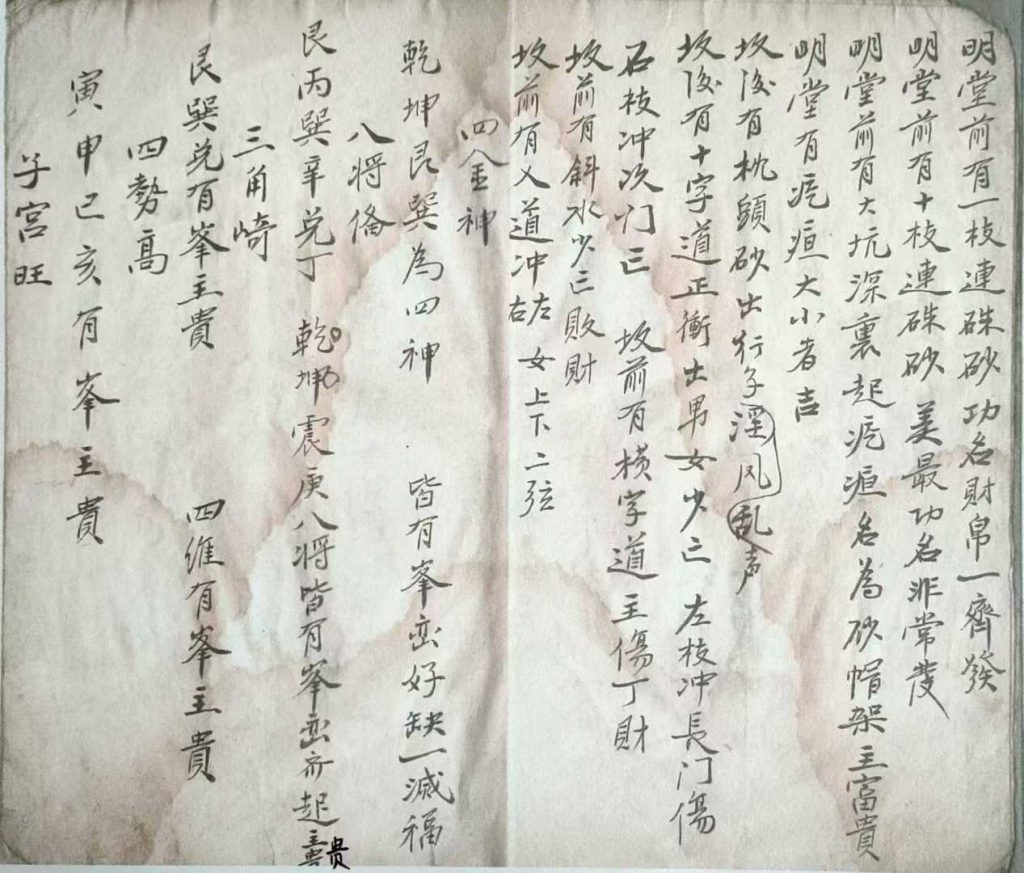 明堂前有一枝連硃砂功名財帛一齊發
明堂前有十枝連硃砂美最功名非常發
明堂前有大坑深裏起疤疸名為砂帽架主富貴
明堂有疤疸大小者吉
坟後有枕頭砂出行子淫风乱声
坟後有十字道正衝出男女少亡 左枝冲長门傷
右枝冲次门亡 坟前有横字道主傷丁財
坟前有斜水少亡敗財
坟前有义道冲左右女上下二弦
四金神
乾坤艮巽為四神 皆有峯峦好缺一減福
八將俻
艮丙巽辛兑丁 乾坤震庚八將皆有峯峦齐起主贵
三角崎
艮巽兑有峯主貴
四勢高 四維有峯主貴
寅申巳亥有峯主貴
子宫旺